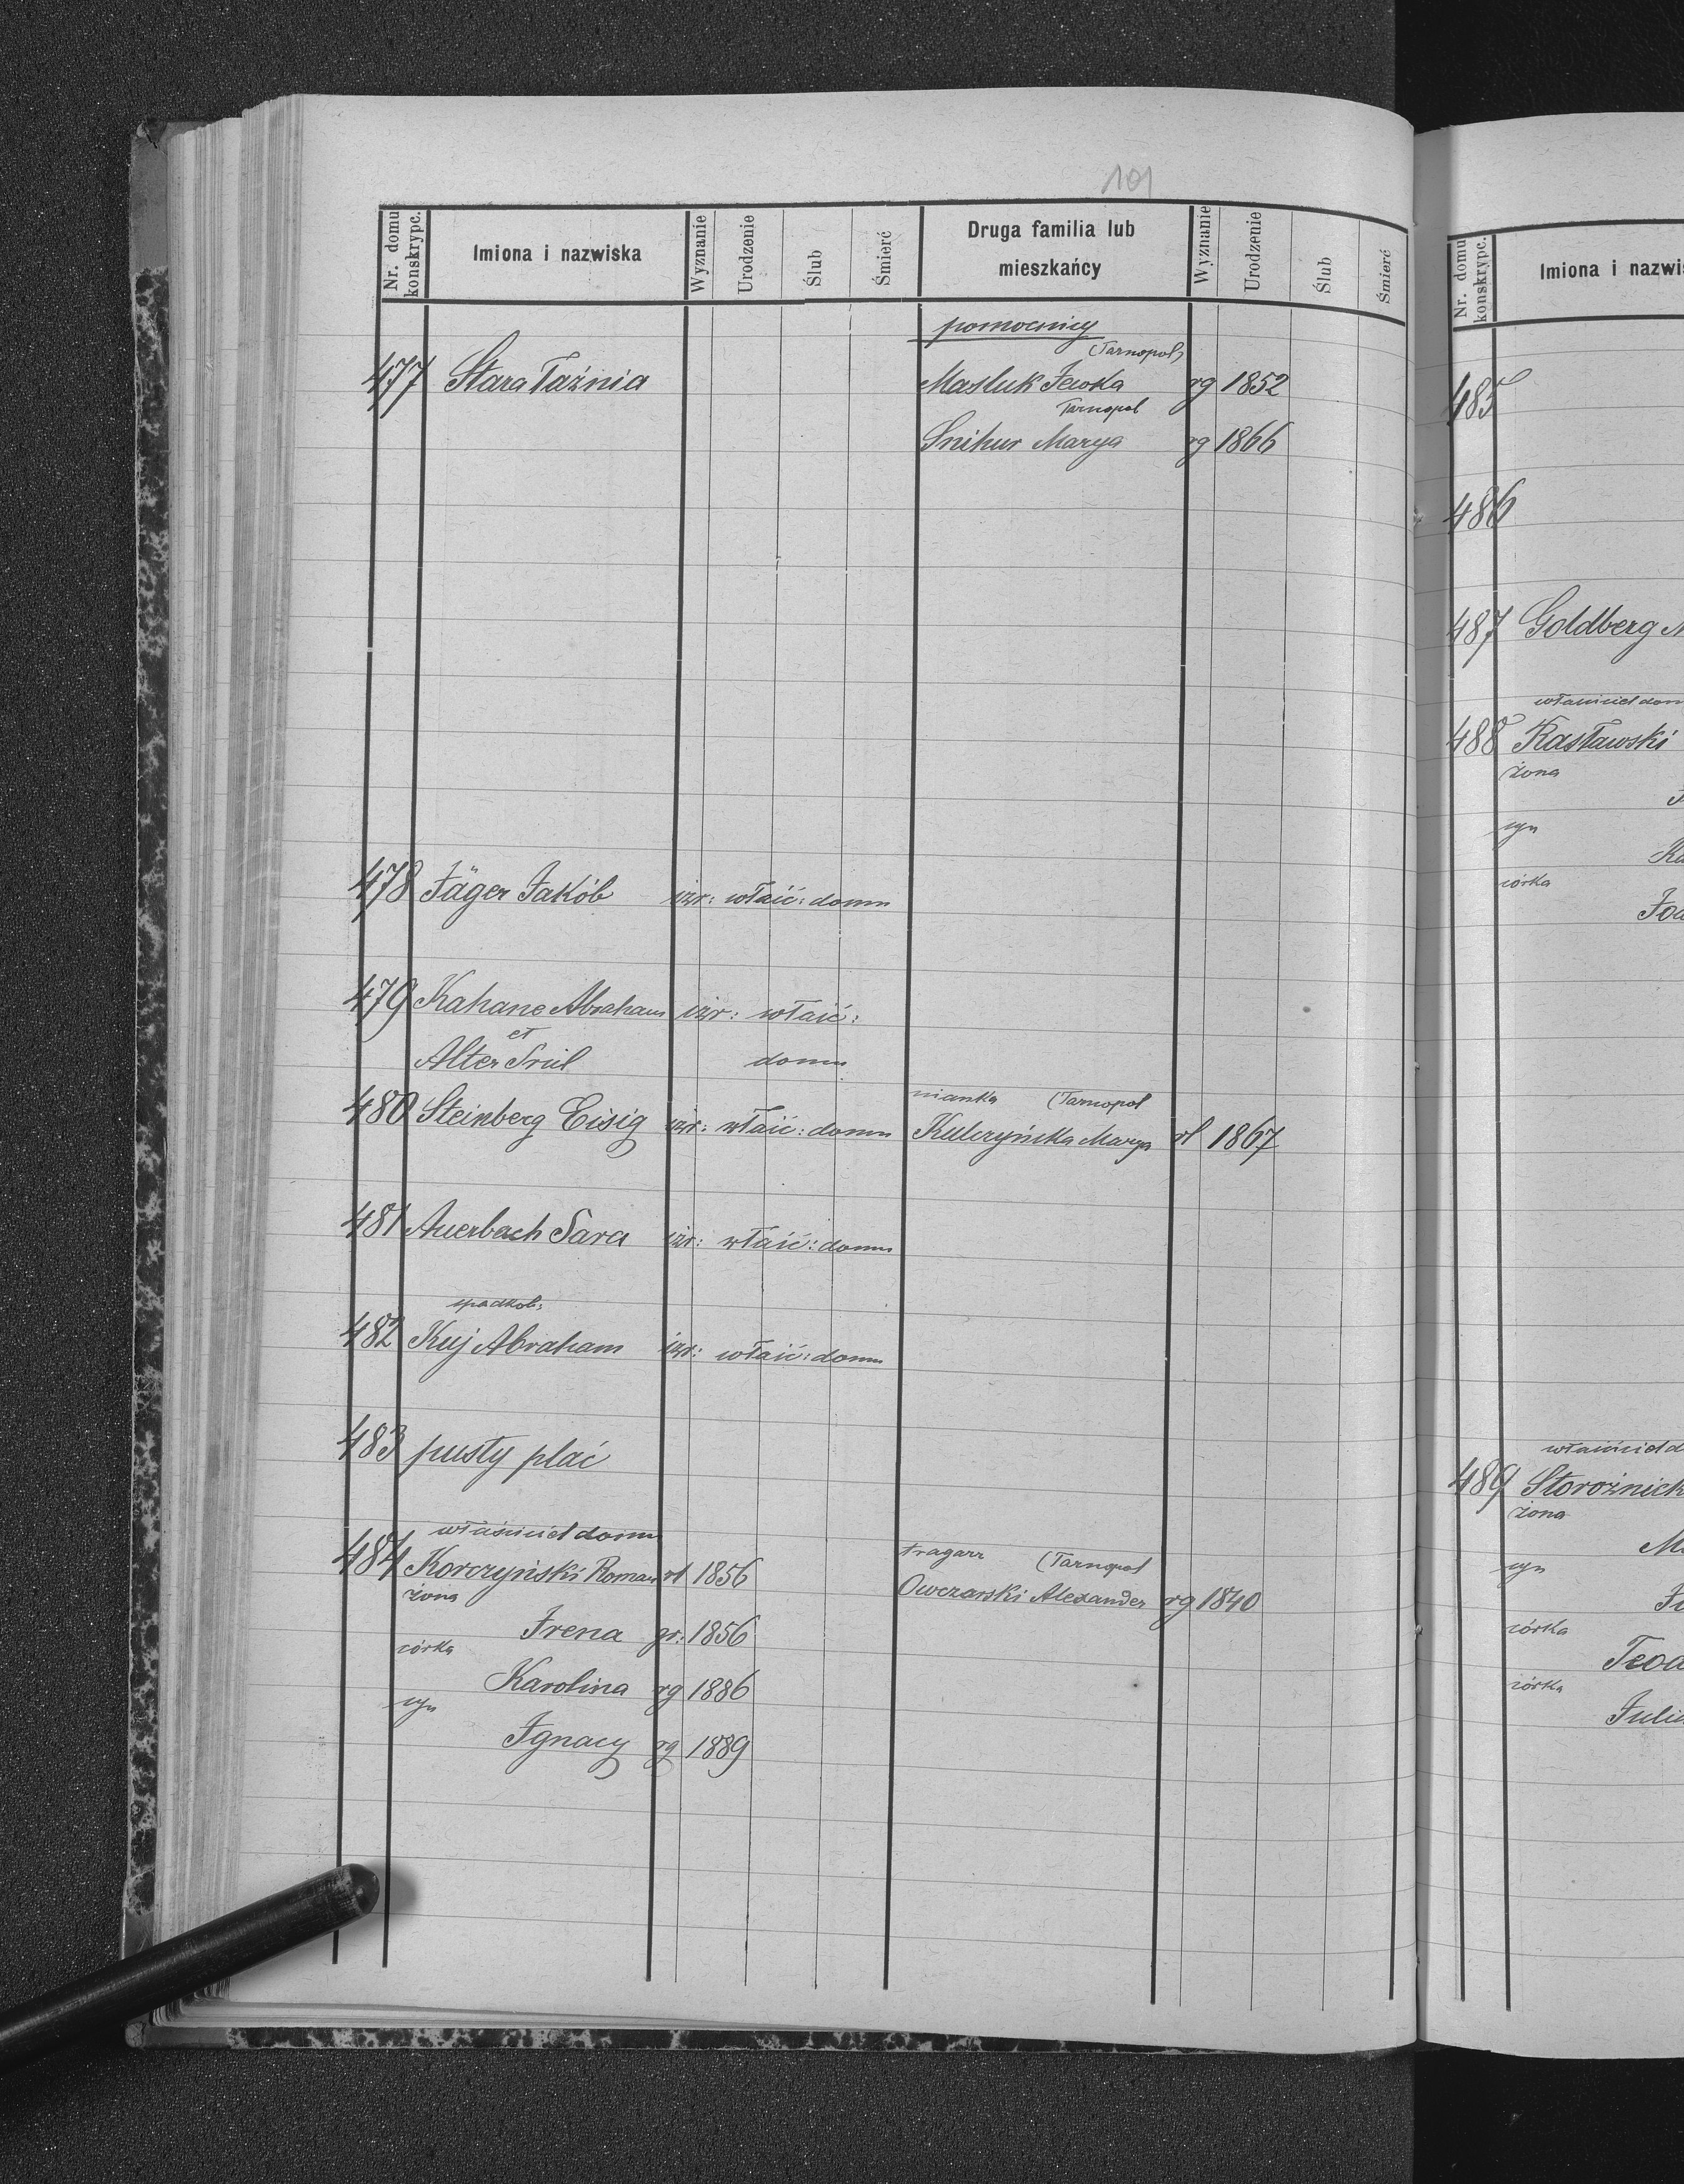 101
Nr. domu konskrypc. Imiona i nazwiska Wyznanie Urodzenie Ślub Śmierć Druga familia lub mieszkańcy Wyznanie Urodzenie Ślub Śmierć
pomocnicy
(Tarnopol)
477 Stara Łaźnia Masluk Jewka rg 1852
Tarnopol
Snihur Marya rg 1866
478 Jäger Jakób izr: właść: domu
479 Kahane Abraham izr: właść:
et
Alter Sril domu
nianka (Tarnopol
480 Steinberg Eisig izr: właść: domu Kulczyńska Marya rł 1867
481 Auerbach Sara izr: właść: domu
spadkob:
482 Kuj Abraham izr: właść: domu
483 pusty plać
właściciel domu tragarz (Tarnopol
484 Korczyński Roman rł 1856 Owczarski Alexander rg 1840
żona
Irena gr: 1856
córka
Karolina rg 1886
syn
Ignacy rg 1889
Nr. domu konskrypc. Imiona i nazwi
485
486
487 Goldberg
właściciel dom
488 Kasławski
żona
syn
córka
właściciel d
489 Storożnick
żona
syn
córka
Teod
córka
Julia